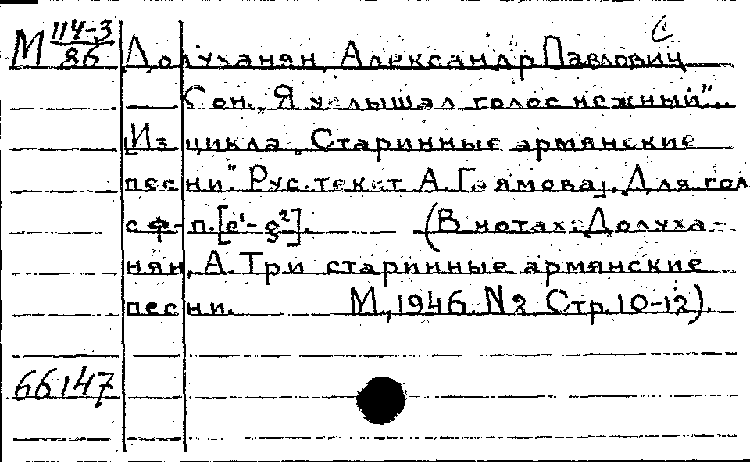 С
М 114-3/86 Долуханян, Александр Павлович
Сон. „Я услышал голос нежный"..
[Из цикла „Старинные армянские
песни". Рус. текст А. Гаямова]. Для гол.
с ф-п. [e¹-g²]. (В нотах: Долуха-
нян, А. Три старинные армянские
песни. М., 1946. N2 Стр. 10-12).
66147